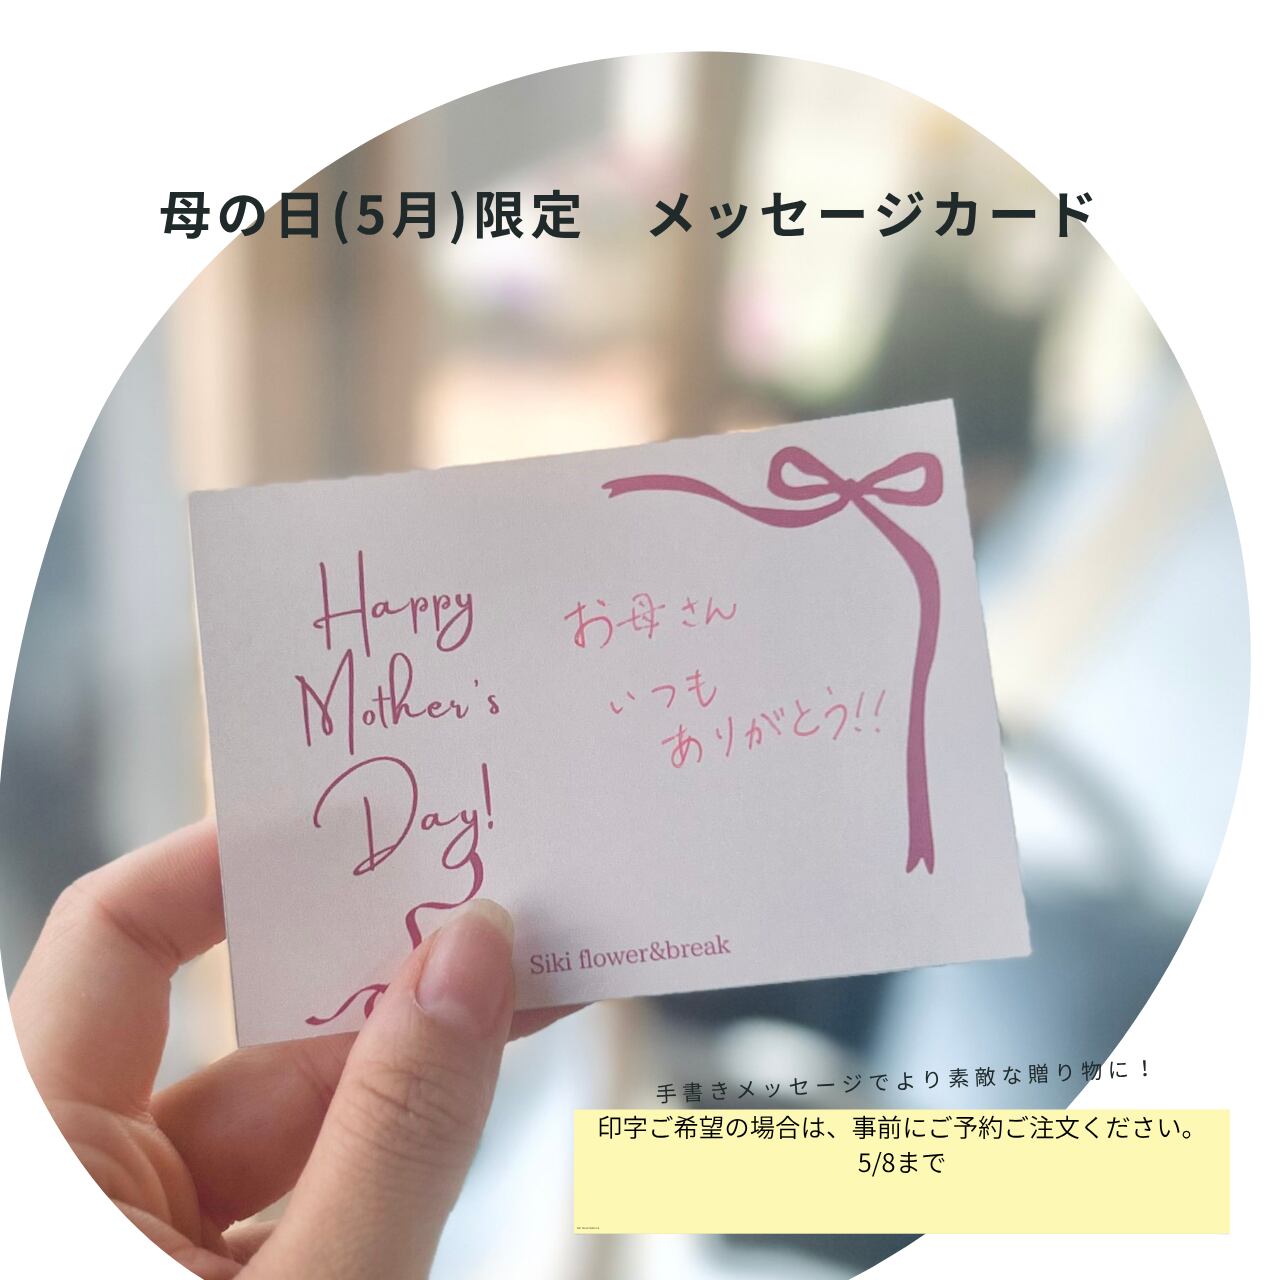 母の日(5月)限定　メッセージカード
Happy
Mother's
Day!
お母さん
いつも
ありがとう!!
Siki flower&break
手書きメッセージでより素敵な贈り物に！
印字ご希望の場合は、事前にご予約ご注文ください。
5/8まで